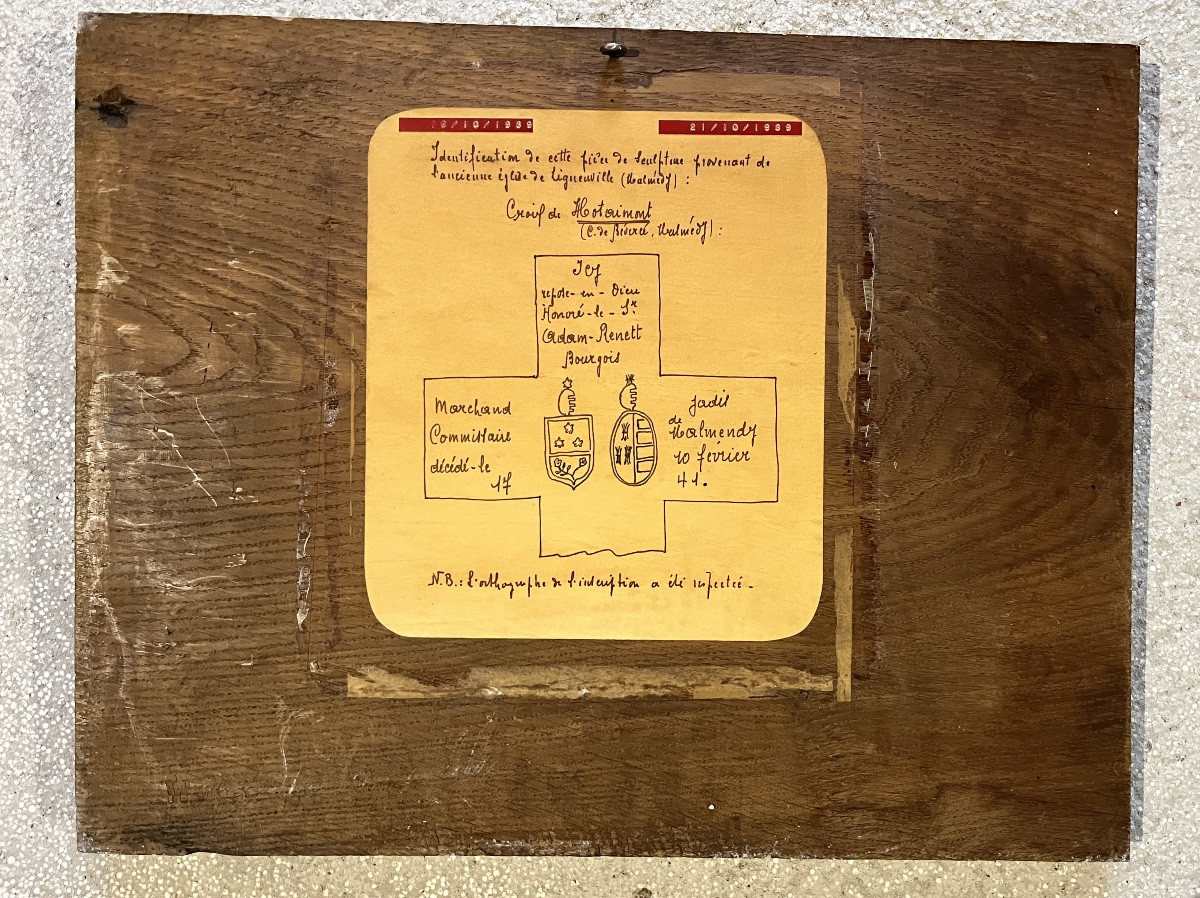 19/10/1989
21/10/1989
Identification de cette pièce de sculpture provenant de
l'ancienne église de Ligneuville (Malmédy) :
Croix de
(C. de Bévercé, Malmédy) :
Icy
repose-en-Dieu
Honoré-le-Sr.
Adam-Renett
Bourgois
Marchand
Commissaire
décédé-le
17
jadis
de
Malmendy
10 février
41.
N.B.: L'orthographe de l'inscription a été respectée.